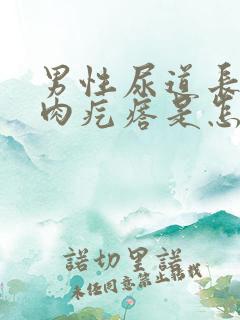 男性尿道長
肉疙瘩是怎
諾切里諾
未任同意禁止轉載